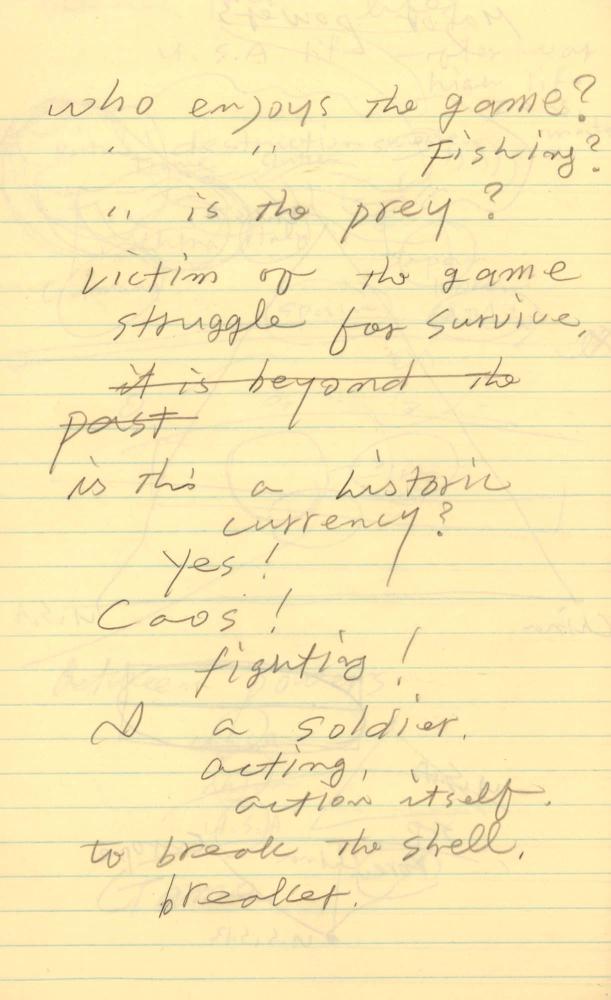 who enjoys the game?
" " Fishing?
" is the prey?
victim of the game
struggle for survive.
it is beyond the
past
is this a historic
currency?
Yes!
Caos!
fighting!
I a soldier.
acting.
action itself.
to break the shell.
breaker.